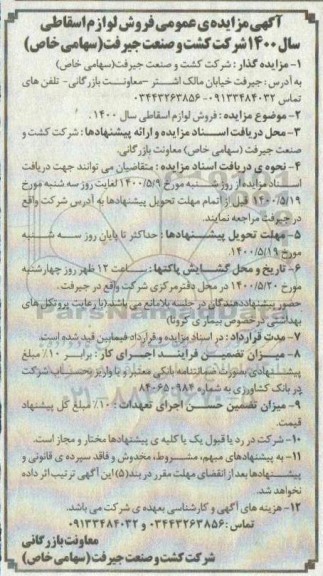 آگهی مزایده‌ی عمومی فروش لوازم اسقاطی
سال ۱۴۰۰ شرکت کشت و صنعت جیرفت (سهامی خاص)
۱- مزایده گذار : شرکت کشت و صنعت جیرفت(سهامی خاص)
به آدرس : جیرفت خیابان مالک اشتر – معاونت بازرگانی- تلفن های
تماس ۰۹۱۳۳۴۸۴۰۳۲ - ۰۳۴۴۳۲۶۳۸۵۶
۲- موضوع مزایده : فروش لوازم اسقاطی سال ۱۴۰۰ .
۳- محل دریافت اسناد مزایده و ارائه پیشنهادها : شرکت کشت و
صنعت جیرفت (سهامی خاص) معاونت بازرگانی.
۴- نحوه ی دریافت اسناد مزایده : متقاضیان می توانند جهت دریافت
اسناد مزایده از روز شنبه مورخ ۱۴۰۰/۵/۹ لغایت روز سه شنبه مورخ
۱۴۰۰/۵/۱۹ قبل از اتمام مهلت تحویل پیشنهادها به آدرس شرکت واقع
در جیرفت مراجعه نمایند.
۵- مهلت تحویل پیشنهادها : حداکثر تا پایان روز سه شنبه
مورخ ۱۴۰۰/۵/۱۹.
۶- تاریخ و محل گشایش پاکتها : ساعت ۱۲ ظهر روز چهارشنبه
مورخ ۱۴۰۰/۵/۲۰ در محل دفتر مرکزی شرکت واقع در جیرفت.
حضور پیشنهاددهندگان در جلسه بلامانع می باشد.(با رعایت پروتکل های
بهداشتی در خصوص بیماری کرونا)
۷- مدت قرارداد : در اسناد مزایده و قرارداد فیمابین قید شده است.
۸- میزان تضمین فرایند اجرای کار : برابر ۱۰٪ مبلغ
پیشنهادی بصورت ضمانتنامه بانکی معتبر و یا واریز وجه به حساب شرکت
در بانک کشاورزی به شماره ۸۴۰۶۵۰۹۸۴
۹- میزان تضمین حسن اجرای تعهدات : ۱۰٪ مبلغ کل پیشنهاد
قیمت.
۱۰- شرکت در رد یا قبول یک یا کلیه ی پیشنهادها مختار و مجاز است.
۱۱- به پیشنهادهای مبهم، مشروط، مخدوش و فاقد سپرده ی قانونی و
پیشنهادها بعد از انقضای مهلت مقرر در بند(۵) این آگهی ترتیب اثر داده
نخواهد شد.
۱۲- هزینه های آگهی و کارشناسی بعهده ی شرکت می باشد.
تماس : ۰۳۴۴۳۲۶۳۸۵۶ و ۰۹۱۳۳۴۸۴۰۳۲
معاونت بازرگانی
شرکت کشت و صنعت جیرفت (سهامی خاص)